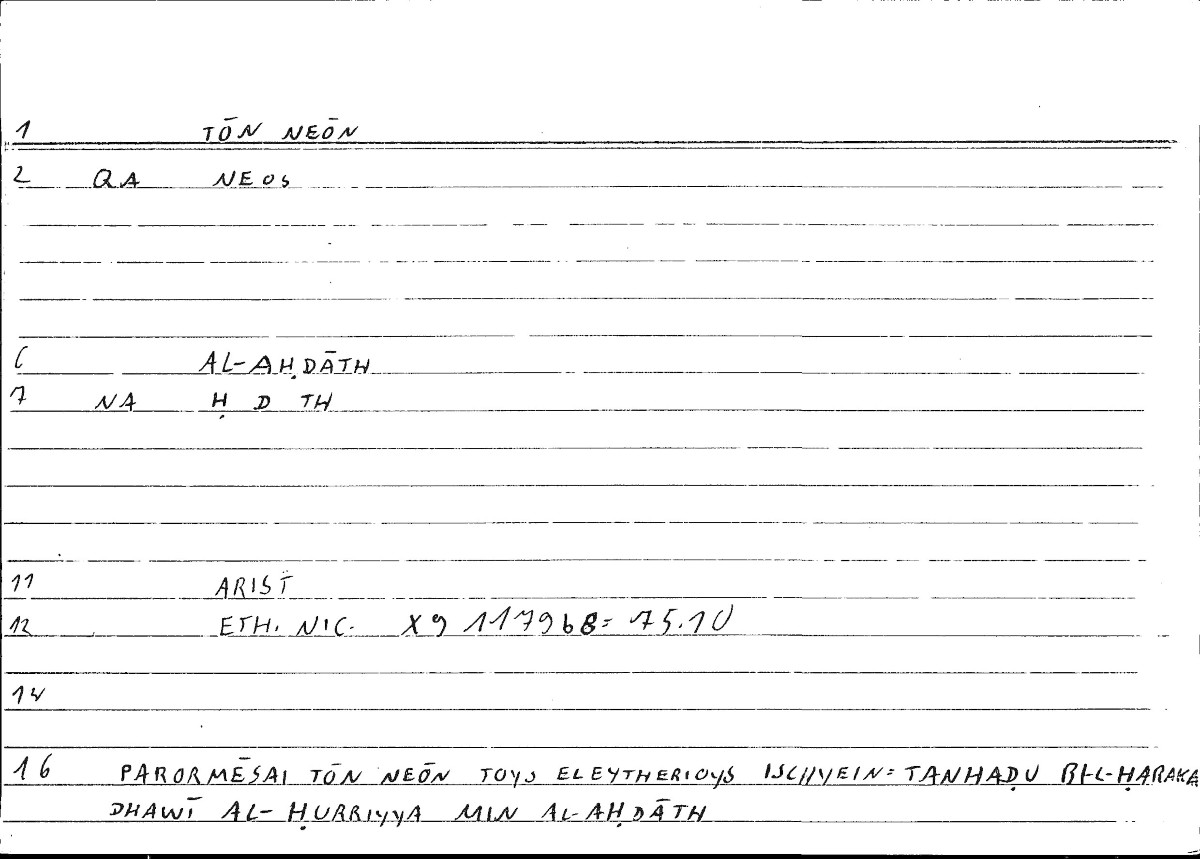 1 TŌN NEŌN
2 QA NEOS
6 AL-AḤDĀTH
7 NA Ḥ D TH
11 ARIST
12 ETH. NIC. X9 1179b8= 75.10
14
16 PARORMĒSAI TŌN NEŌN TOYS ELEYTHERIOYS ISCHYEIN= TANHAḌU BI-L-ḤARAKA
DHAWĪ AL-ḤURRIYYA MIN AL-AḤDĀTH